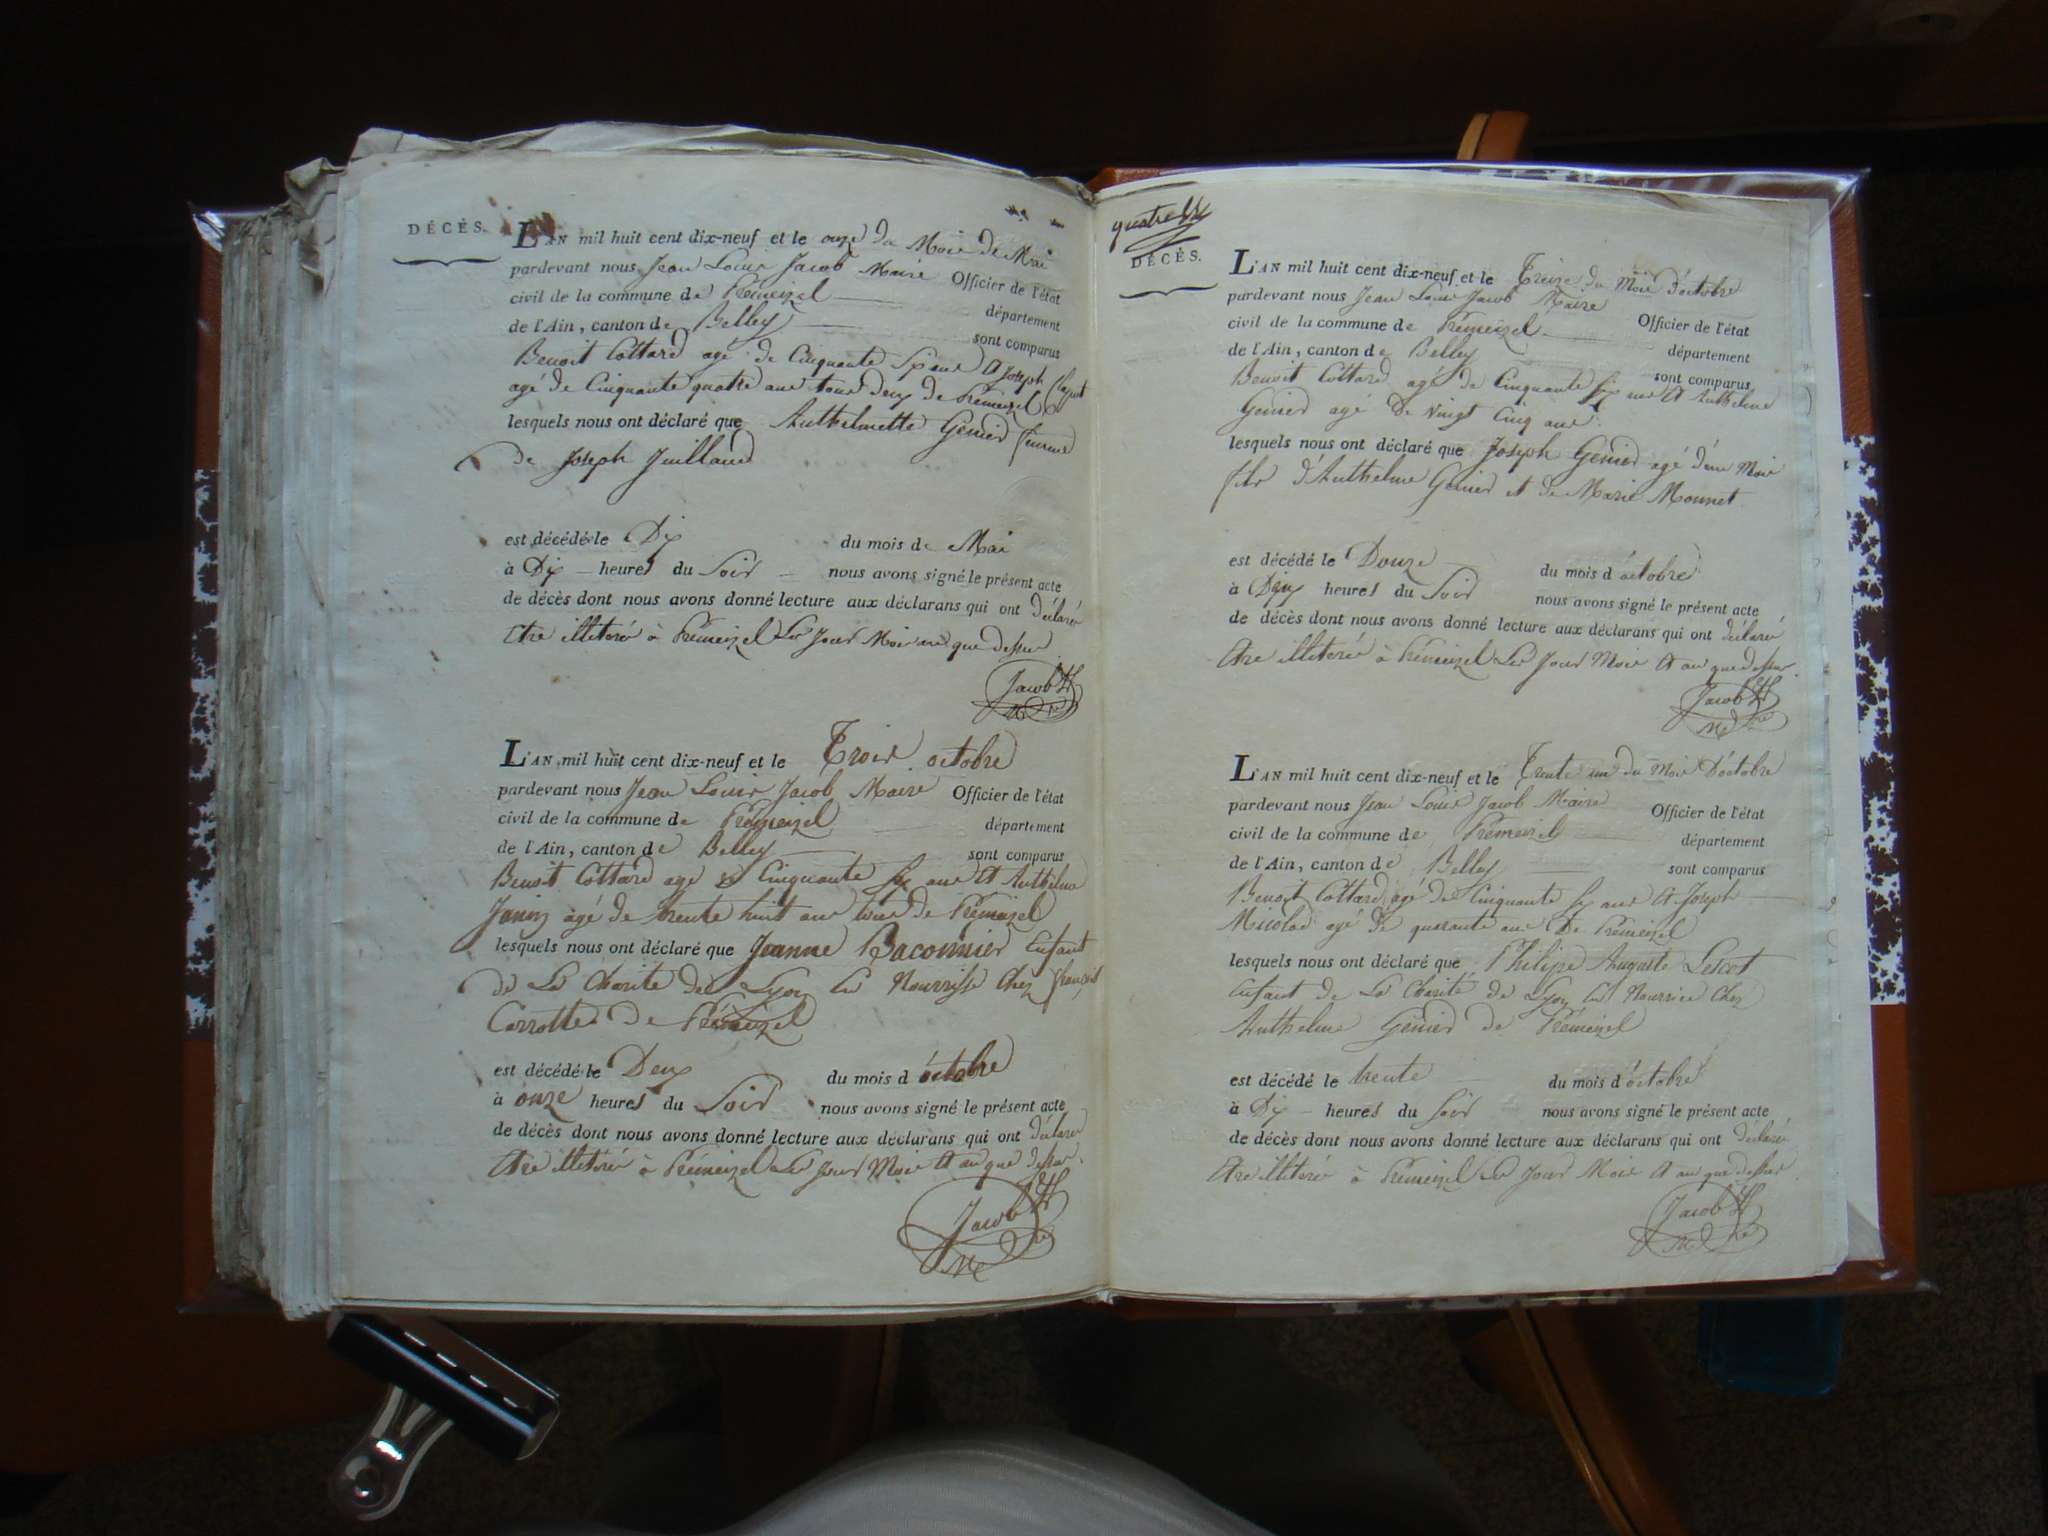 DÉCÈS.
L'AN mil huit cent dix-neuf et le onze du Mois de Mai
pardevant nous Jean Louis Jacob Maire Officier de l'état
civil de la commune de Prémeizel département
de l'Ain, canton de Belley sont comparus
Benoit Cottard agé de Cinquante Six ans et Joseph
agé de Cinquante quatre ans tous deux de Prémeizel
lesquels nous ont déclaré que Anthelmette Genier femme
de Joseph Juilland
est décédé le Dix du mois de Mai
à Dix heures du Soir nous avons signé le présent acte
de décès dont nous avons donné lecture aux déclarans qui ont déclaré
Etre illiteré à Prémeizel Les Jour Mois an que dessus
Jacob
L'AN mil huit cent dix-neuf et le Trois octobre
pardevant nous Jean Louis Jacob Maire Officier de l'état
civil de la commune de Prémeizel département
de l'Ain, canton de Belley sont comparus
Benoit Cottard agé de Cinquante Six ans et Anthelme
Janin agé de trente huit ans tous de Prémeizel
lesquels nous ont déclaré que Jeanne Baconnier Enfant
de La Charité de Lyon En Nourrisse Chez françois
Carrottes de Prémeizel
est décédé le Deux du mois d'octobre
à onze heures du Soir nous avons signé le présent acte
de décès dont nous avons donné lecture aux déclarans qui ont déclaré
Etre illiteré à Prémeizel Les Jour Mois et an que dessus.
Jacob
quatre
DÉCÈS.
L'AN mil huit cent dix-neuf et le Treize du Mois d'octobre
pardevant nous Jean Louis Jacob Maire Officier de l'état
civil de la commune de Prémeizel département
de l'Ain, canton de Belley sont comparus
Benoit Cottard agé de Cinquante Six ans et Anthelme
Genier agé de vingt Cinq ans
lesquels nous ont déclaré que Joseph Genier agé d'un Mois
fils d'Anthelme Genier et de Marie Monnet
est décédé le Douze du mois d'octobre
à Deux heures du Soir nous avons signé le présent acte
de décès dont nous avons donné lecture aux déclarans qui ont déclaré
Etre illiteré à Prémeizel Les Jour Mois et an que dessus
Jacob
L'AN mil huit cent dix-neuf et le Trente un du Mois D'octobre
pardevant nous Jean Louis Jacob Maire Officier de l'état
civil de la commune de Prémeizel département
de l'Ain, canton de Belley sont comparus
Benoit Cottard agé de Cinquante Six ans et Joseph
Nicolas agé de quarante ans De Prémeizel
lesquels nous ont déclaré que Philipe Auguste Lescot
Enfant de La Charité de Lyon En Nourrice Chez
Anthelme Genier de Prémeizel
est décédé le trente du mois d'octobre
à Dix heures du Soir nous avons signé le présent acte
de décès dont nous avons donné lecture aux déclarans qui ont déclaré
Etre illiteré à Prémeizel Les Jour Mois et an que dessus
Jacob